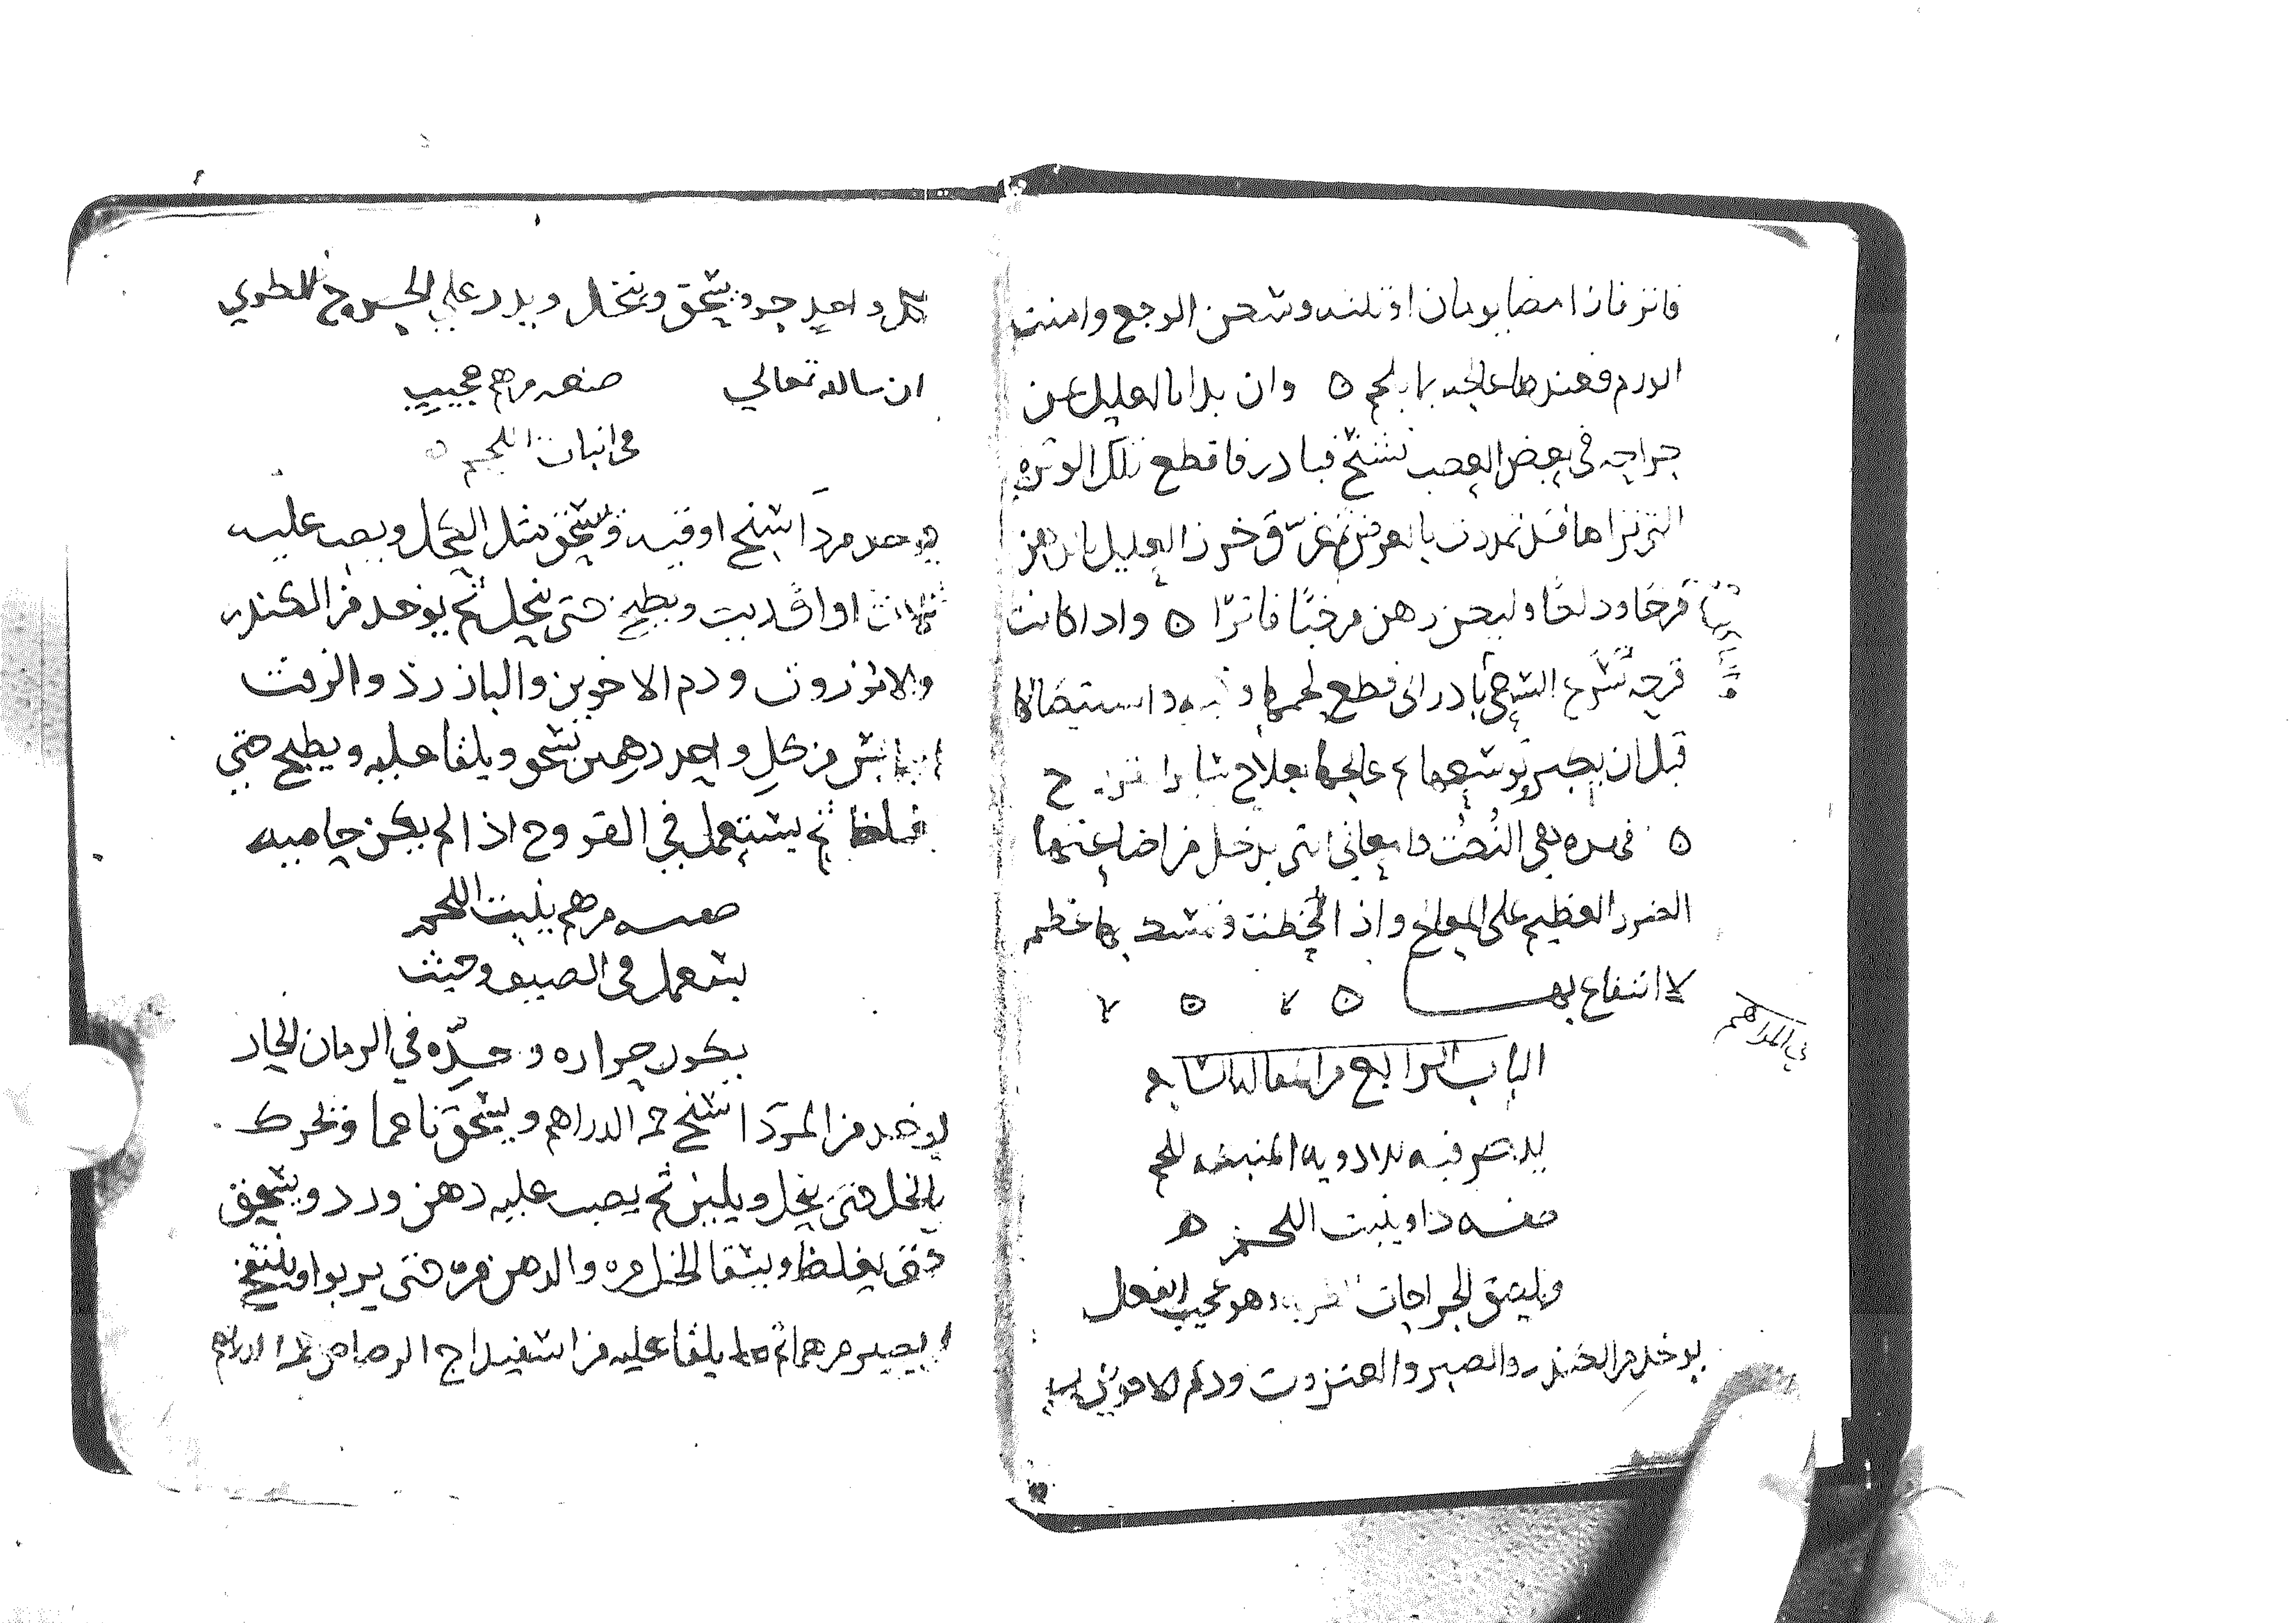 فاتر فاذا مضا يومان او ثلثه وسكن الوجع وامنت
الورم فعندها عالجه بما يلحم ه وان بدا بالعليل عن
جراحه في بعض العصب تشنج فبادر فاقطع تلك الوتره
التي تراها قد تمددت بالعرض ثم غرّق خرز العليل بالدهن
قرحا ودلكا وليكن دهن مرخيًا فاترًا ه واذا كانت
قرحه تسرع السعي بادر الى قطع لحمها واستيصالها
قبل ان يكبر توسعها ثم عالجها بعلاج سائر القروح
ه فهذه هي النكت والمعاني التي يدخل من اضاعتها
الضرر العظيم على المعالج واذا حفظت
لا انتفاع بها ه ه
في المراهم
الباب الرابع من المقاله السابعه
يذكر فيه الادويه المنبته للحم
صفه دوا ينبت اللحم ه
ويلصق الجراحات الطريه وهو عجيب الفعل
يوخذ من الكندر والصبر والعنزروت ودم الاخوين من
كل واحد جزو ويسحق وينخل ويذر على الجروح الطري
ان شا الله تعالى صفه مرهم عجيب
في انبات اللحم ه
يوخذ مرداسنج اوقيه ويسحق مثل الكحل ويصب عليه
ثلاث اواق زيت ويطبخ حتى ينحل ثم يوخذ من الكندر
والانزروت ودم الاخوين والبازرذ والزفت
اليابس من كل واحد درهمين تسحق ويلقا عليه ويطبخ حتى
يغلظ ثم يستعمل في القروح اذا لم يكن حاميه
صفه مرهم ينبت اللحم
يستعمل في الصيف وحيث
يكون حراره وحدّه في الزمان الحار
يوخذ من المرداسنج الدراهم ويسحق ناعما وتحرك
بالخل حتى ينحل ويلين ثم يصب عليه دهن ورد ويسحق
حتى يغلظ ويسقا الخل مره والدهن مره حتى يربوا وينتفخ
ويصير مرهما ثم يلقا عليه من اسفيداج الرصاص الدراهم